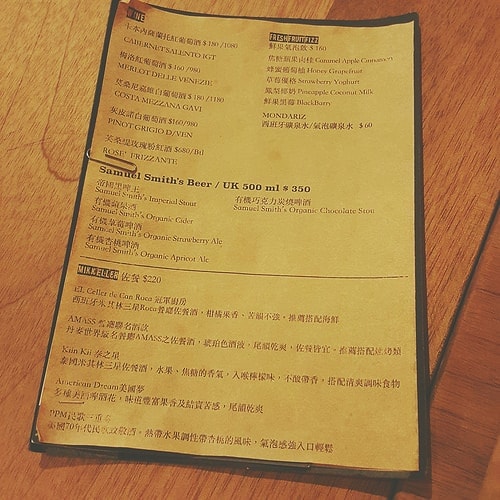 WINE
卡本內薩蘭托紅葡萄酒 $180 /1080
CABERNET SALENTO IGT
梅洛紅葡萄酒 $160 /980
MERLOT DELLE VENEZIE
艾桑尼嘉維白葡萄酒 $180 /1180
COSTA MEZZANA GAVI
灰皮諾白葡萄酒 $160/980
PINOT GRIGIO D/VEN
芙桑緹玫瑰粉紅酒 $680/Btl
ROSE' FRIZZANTE
FRESH FRUIT FIZZ
鮮果氣泡飲 $160
焦糖蘋果肉桂 Caramel Apple Cinnamon
蜂蜜葡萄柚 Honey Grapefruit
草莓優格 Strawberry Yoghurt
鳳梨椰奶 Pineapple Coconut Milk
鮮果黑莓 BlackBerry
MONDARIZ
西班牙礦泉水/氣泡礦泉水 $ 60
Samuel Smith's Beer / UK 500 ml $ 350
帝國黑啤酒
Samuel Smith's Imperial Stout
有機蘋果酒
Samuel Smith's Organic Cider
有機草莓啤酒
Samuel Smith's Organic Strawberry Ale
有機杏桃啤酒
Samuel Smith's Organic Apricot Ale
有機巧克力炭燒啤酒
Samuel Smith's Organic Chocolate Stout
MIKKELLER 佐餐 $220
EL Celler de Can Roca 冠軍廚房
西班牙米其林三星Roca餐廳佐餐酒,柑橘果香、苦韻不強。推薦搭配海鮮
AMASS 餐廳聯名酒款
丹麥世界級名餐廳AMASS之佐餐酒,琥珀色酒液,尾韻乾爽,佐餐皆宜。推薦搭配燒烤類
Kiin Kii 泰之星
泰國米其林三星佐餐酒,水果、焦糖的香氣,入喉檸檬味,不酸帶香,搭配清爽調味食物
American Dream美國夢
多種美國啤酒花,味道豐富果香及結實苦感,尾韻乾爽
PPM民歌三重奏
70年代民歌致敬酒。熱帶水果調性帶杏桃的風味,氣泡感強入口輕鬆